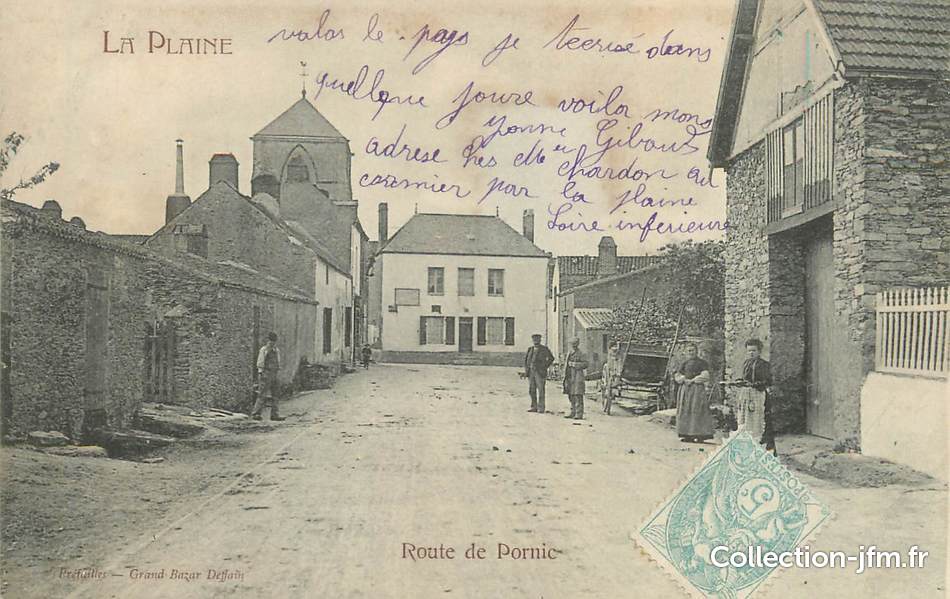 LA PLAINE
valas le pays je tecrisé dans
quellque joure voilar mons
adrese
Yonne Gibaud
chardon au
carmier par la plaine
Loire inferieure
Route de Pornic
Préfailles — Grand Bazar Deffain
POSTES
5
Collection-jfm.fr